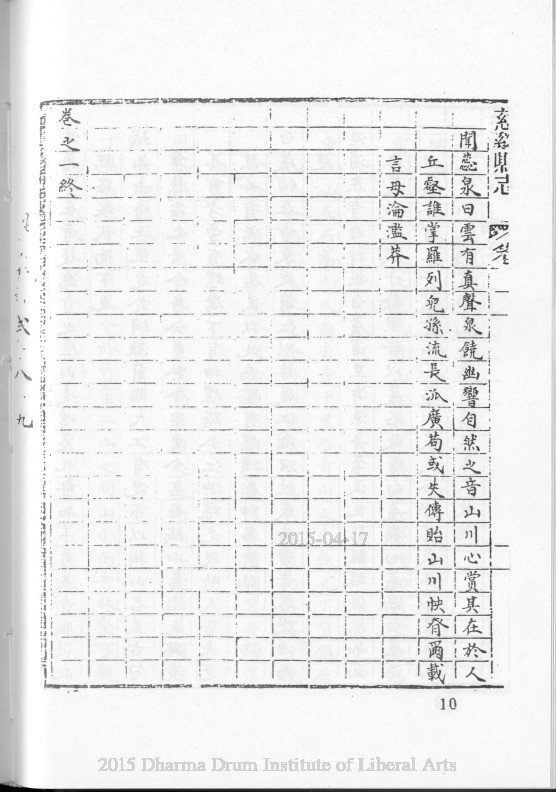 縣志 卷一
聞蕊泉曰雲有真聲泉饒幽響自然之音山川心賞其在於人
丘壑誰掌羅列兒孫流長派廣苟或失傳貽山川怏脊爾載
言毋淪滥莽
卷之一終
八 九
2015-04-17
10
2015 Dharma Drum Institute of Liberal Arts